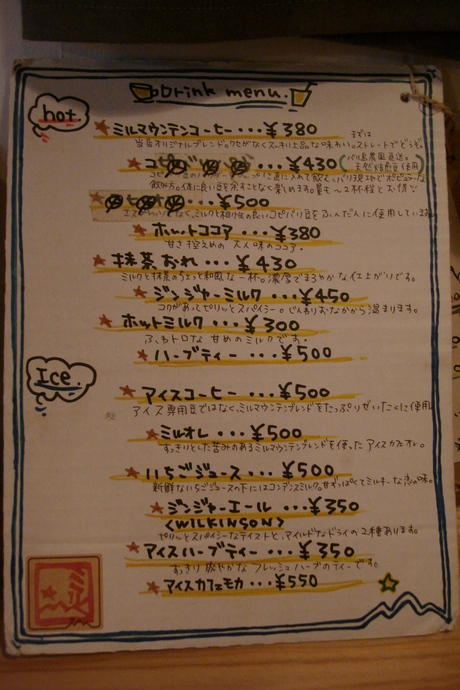 Drink menu.
hot.
ミルマウンテンコーヒー・・・¥380
まずは
当店オリジナルブレンド。クセがなくスッキリ上品な味わい。ストレートでどうぞ。
・・・¥430 (バリ島農園直送。
天然焙煎豆使用)
飲み方。体に良い豆を余すことなく楽しめます。
・・・¥500
なく、ミルクと相性の良いコピバリ豆をふんだんに使用しています
ホットココア・・・¥380
甘さ控えめの大人味のココア。
抹茶おれ・・・¥430
ミルクと抹茶のちょっと和風な一杯。濃厚でまろやかな仕上がりです。
ジンジャーミルク・・・¥450
コクがあってピリッとスパイシー。じんわりおなかから温まります。
ホットミルク・・・¥300
ふわトロな甘めのミルクです。
ハーブティー・・・¥500
Ice
アイスコーヒー・・・¥500
アイス専用豆ではなく、ミルマウンテンブレンドをたっぷりぜいたくに使用
ミルオレ・・・¥500
すっきりとした苦みのあるミルマウンテンブレンドを使ったアイスカフェオレ。
いちごジュース・・・¥500
新鮮ないちごジュースの下にはコンデンスミルク。甘ずっぱくてミルキーな恋の味。
ジンジャーエール・・・¥350
<WILKINSON>
ピリッとスパイシーなテイストと、マイルドなドライの2種あります。
アイスハーブティー・・・¥350
すっきり爽やかなフレッシュハーブのティーです。
アイスカフェモカ・・・¥550